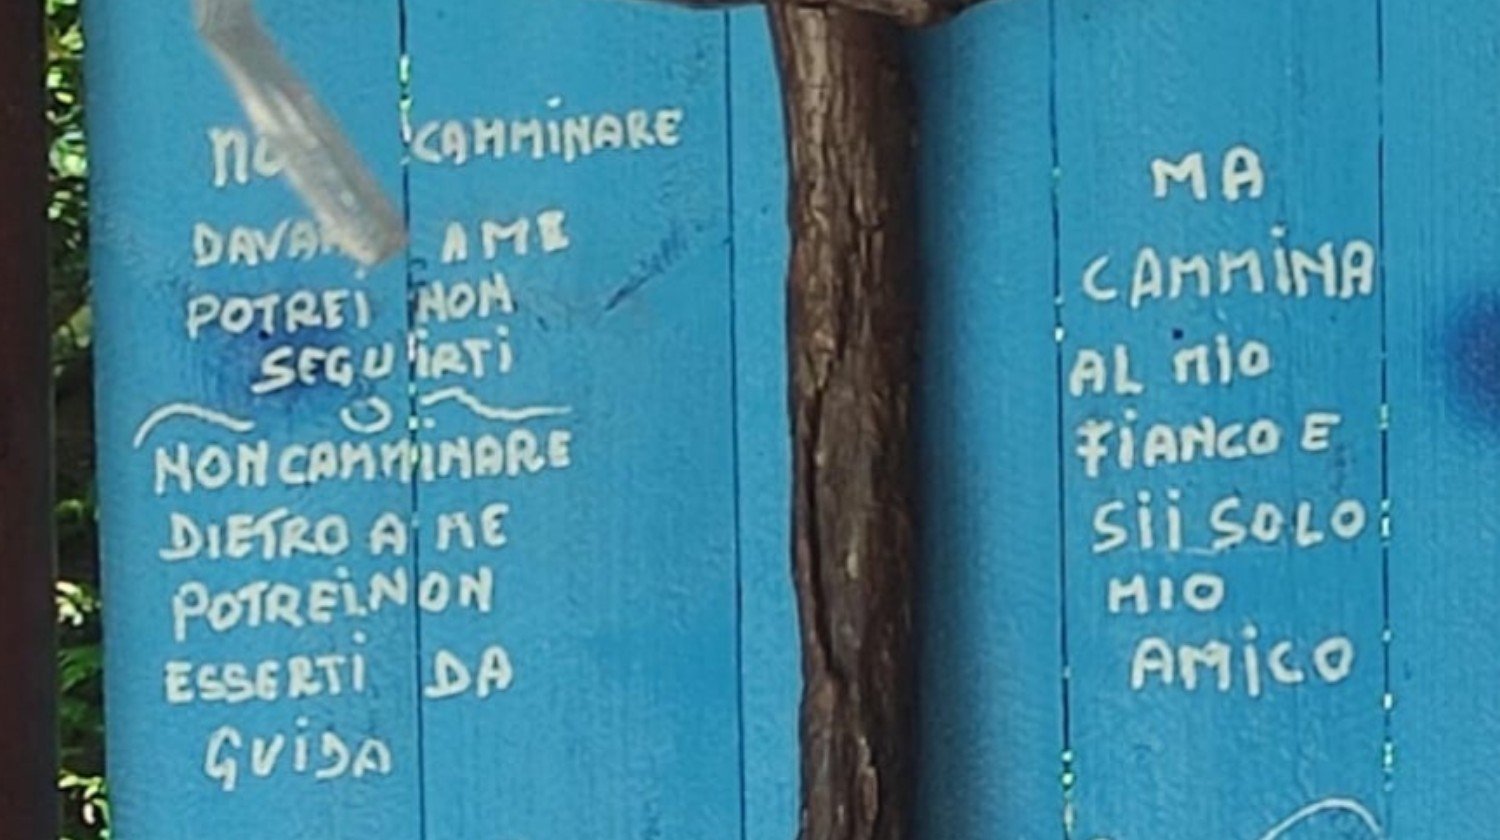 CAMMINARE
A ME
POTREI NON
SEGUIRTI
NON CAMMINARE
DIETRO A ME
POTREI NON
ESSERTI DA
GUIDA
MA
CAMMINA
AL MIO
FIANCO E
SII SOLO
MIO
AMICO